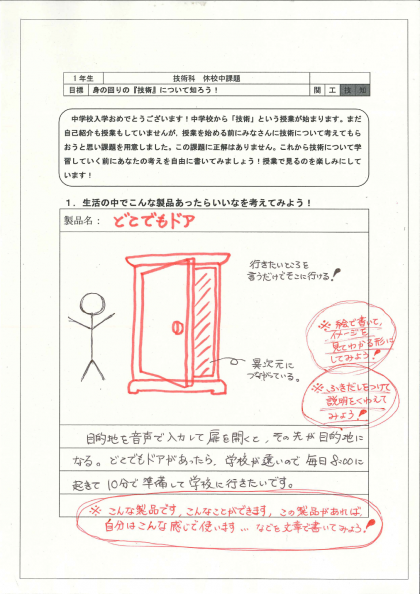 1年生 技術科 休校中課題
目標 身の回りの『技術』について知ろう！ 関 工 技 知
中学校入学おめでとうございます！中学校から「技術」という授業が始まります。まだ
自己紹介も授業もしていませんが、授業を始める前にみなさんに技術について考えてもら
おうと思い課題を用意しました。この課題に正解はありません。これから技術について学
習していく前にあなたの考えを自由に書いてみましょう！授業で見るのを楽しみにして
います！
１．生活の中でこんな製品あったらいいなを考えてみよう！
製品名： どこでもドア
行きたいところを
言うだけでそこに行ける！
※絵で書いて、
イメージを
見てわかる形に
してみよう！
異次元に
つながっている。
※ふきだしをつけて
説明をくわえて
みよう！
目的地を音声で入力して扉を開くと、その先が目的地に
なる。どこでもドアがあったら、学校が遠いので毎日8:00に
起きて10分で準備して学校に行きたいです。
※こんな製品です、こんなことができます、この製品があれば、
自分はこんな感じで使います…などを文章で書いてみよう！